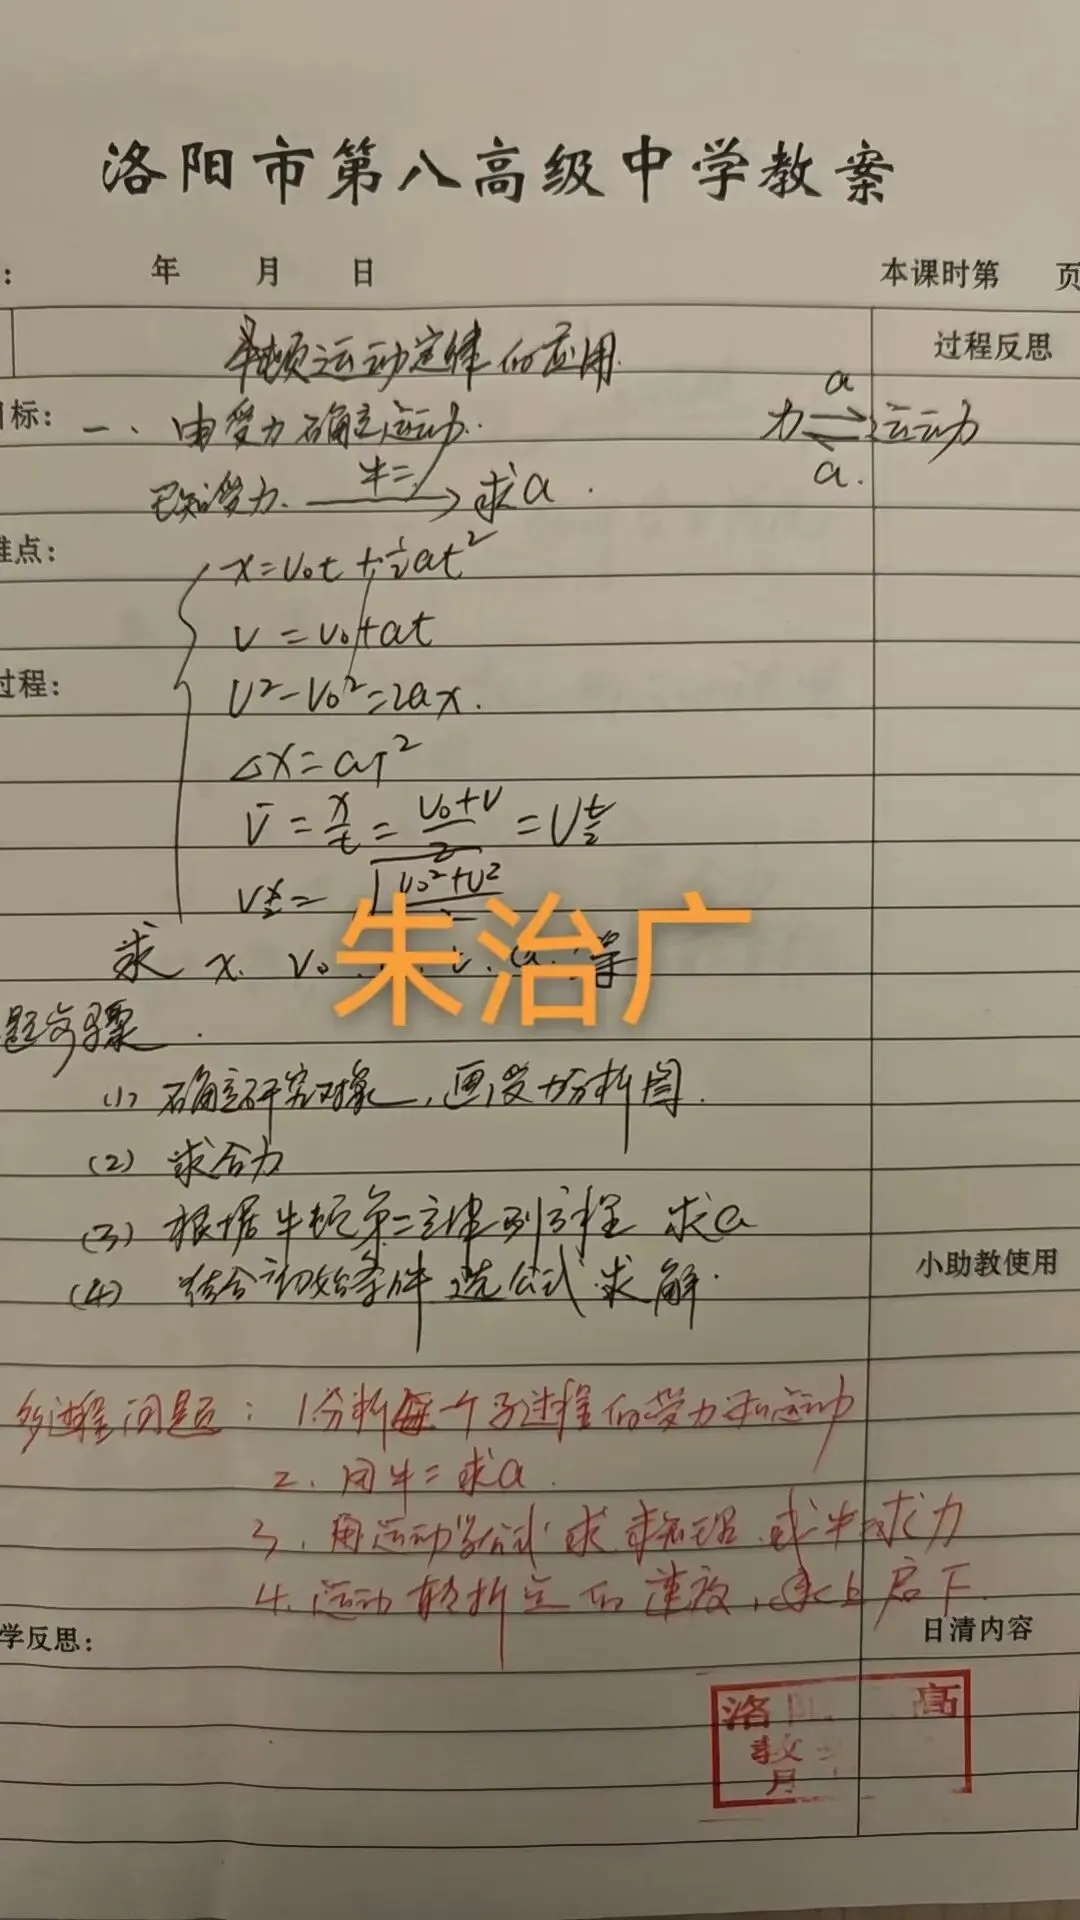 洛阳市第八高级中学教案
: 年 月 日 本课时第 页
牛顿运动定律的应用. 过程反思
目标: 一、由受力确定运动. 力 ⇌ 运动
a
a.
已知受力. 牛二 → 求a.
难点:
x=v₀t+½at²
v=v₀+at
过程:
v²-v₀²=2ax.
△x=aT²
v̄=x/t=(v₀+v)/2=v t/2
v x/2=√(v₀²+v²)/
求 x. v₀ a. 等
朱治广
题步骤.
(1) 确定研究对象,画受力分析图.
(2) 求合力
(3) 根据牛顿第二定律列方程 求a
小助教使用
(4) 结合初始条件 选公式 求解.
多过程问题: 1分析每一个子过程的受力和运动
2. 用牛二求a.
3. 用运动学公式求 或牛二求力
4. 运动转折点的速度,承上启下.
学反思: 日清内容
洛 高
教
月